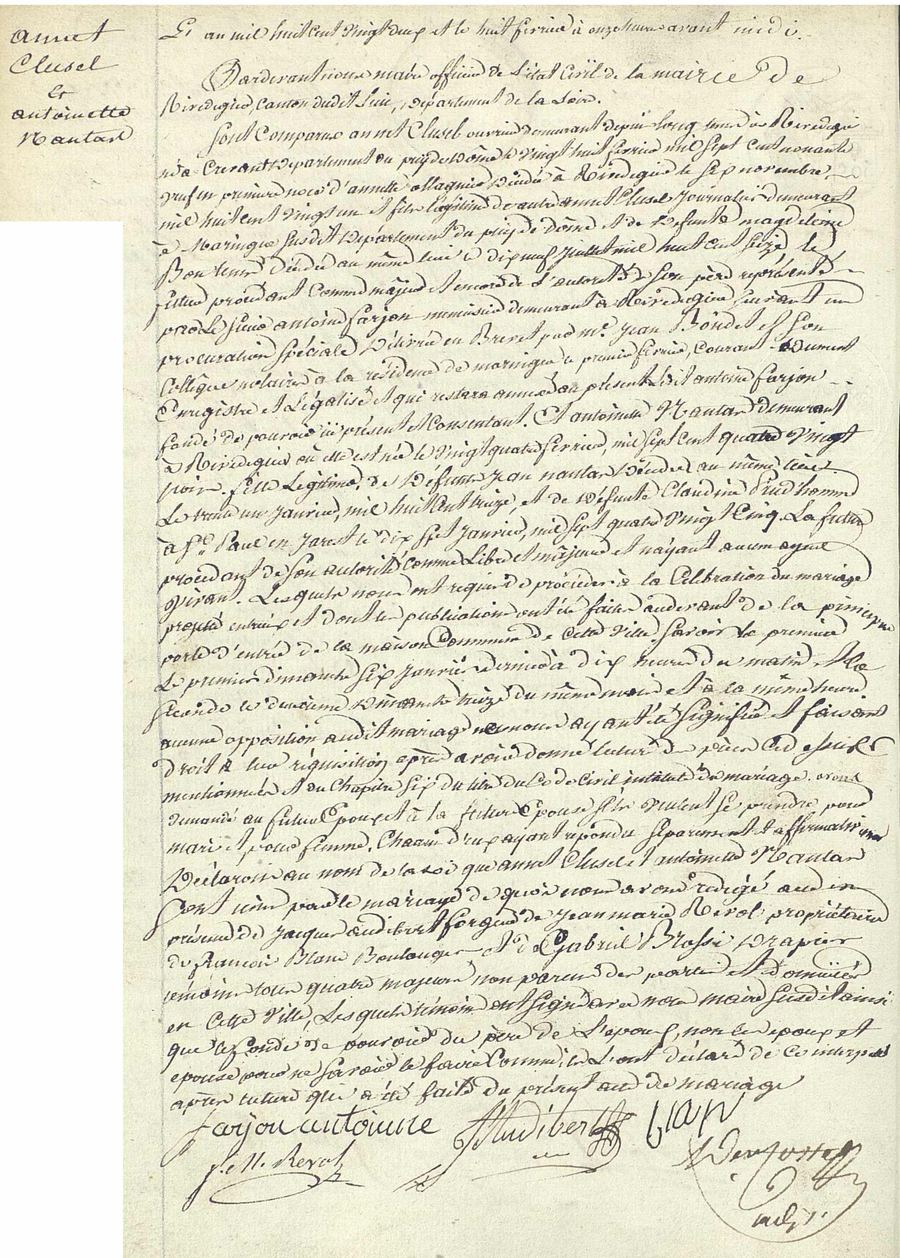 annet
Clusel
Et
antoinette
Nantas
L'an mil huit cent vingt deux et le huit fevrier à onze heures avant midi.
Pardevant nous maire officier de l'état Civil de la mairie De
Rivedegier, canton dudit lieu, Département de la Loire.
sont Comparus annet Clusel ouvrier demeurant depuis long tems à Rivedegier
né à Departement du puy de Dôme le vingt huit fevrier mil sept cent nonante
veuf en premiere noces d'annette allagnier Décédée à Rivedegier le six novembre
mil huit cent vingt un et fils légitime de autre annet Clusel Journalier demeurant
à Maringue susdit Département du puy de Dôme et de Défunte magdeleine
Bon Décédée au même lieu le dix neuf Juillet mil huit cent seize le
futur procédant Comme majeur et encore de l'autorité de son père représenté
par le sieur antoine farjon demeurant à Rivedegier suivant une
procuration spéciale Délivrée en Brevet par me. Jean Bondet et son
Collègue notaires à la résidence de maringue le premier fevrier, Courant Dument
Enregistré et Légalisé et qui restera annexée au présent ledit antoine farjon
fondé de pouvoir ici présent et Consentant. Et antoinette Nantas demeurant
à Rivedegier où elle est née le vingt quatre fevrier, mil sept cent quatre vingt
trois. fille Légitime de Défunt Jean nantas Décédé au même lieu
Le trente un Janvier, mil huit cent treize, et de Défunte Claudine Prudhomme
à St. Paul en Jarest le dix sept Janvier, mil sept quatre vingt Cinq. La future
procédant de son autorité Comme Libre et majeure et n'ayant aucun ayeul
vivant. Lesquels nous ont requis de procéder à la Célébration du mariage
projetté entr'eux et dont les publications ont été faites audevant de la principale
porte d'entrée de la maison Commune de Cette Ville, savoir la premiere
Le premier dimanche six Janvier dernier à dix heures du matin et la
seconde le deuxieme dimanche treize du même mois et à la même heure
aucune opposition audit mariage ne nous ayant été signifiée et faisant
droit à leur réquisition après avoir donné lecture des pièces Cidessus
mentionnées et du Chapitre six du titre du Code Civil intitulé du mariage. avons
demandé au futur Epoux et à la future Epouse s'ils veulent se prendre pour
mari et pour femme, Chacun d'eux ayant répondu séparement et affirmativement
Déclarons au nom de la loi que annet Clusel et antoinette Nantas
Sont unis par le mariage de quoi nous avons rédigé acte en
présence de Jacques audibert forgeur de Jean marie Revol propriétaire
de francois Blanc Boulanger et de Gabriel Brossi Drapier
témoins tous quatre majeurs non parens des parties et domiciliés
en Cette Ville, Lesquels témoins ont signé avec nous maire susdit ainsi
que le fondé de pouvoir du père de L'epoux, non les epoux et
epouse pour ne savoir le faire Comme ils L'ont déclaré de Ce interpellés
après lecture qui a été faite du présent acte de mariage
farjon antoinne Audibert Blanc
J. M. Revol